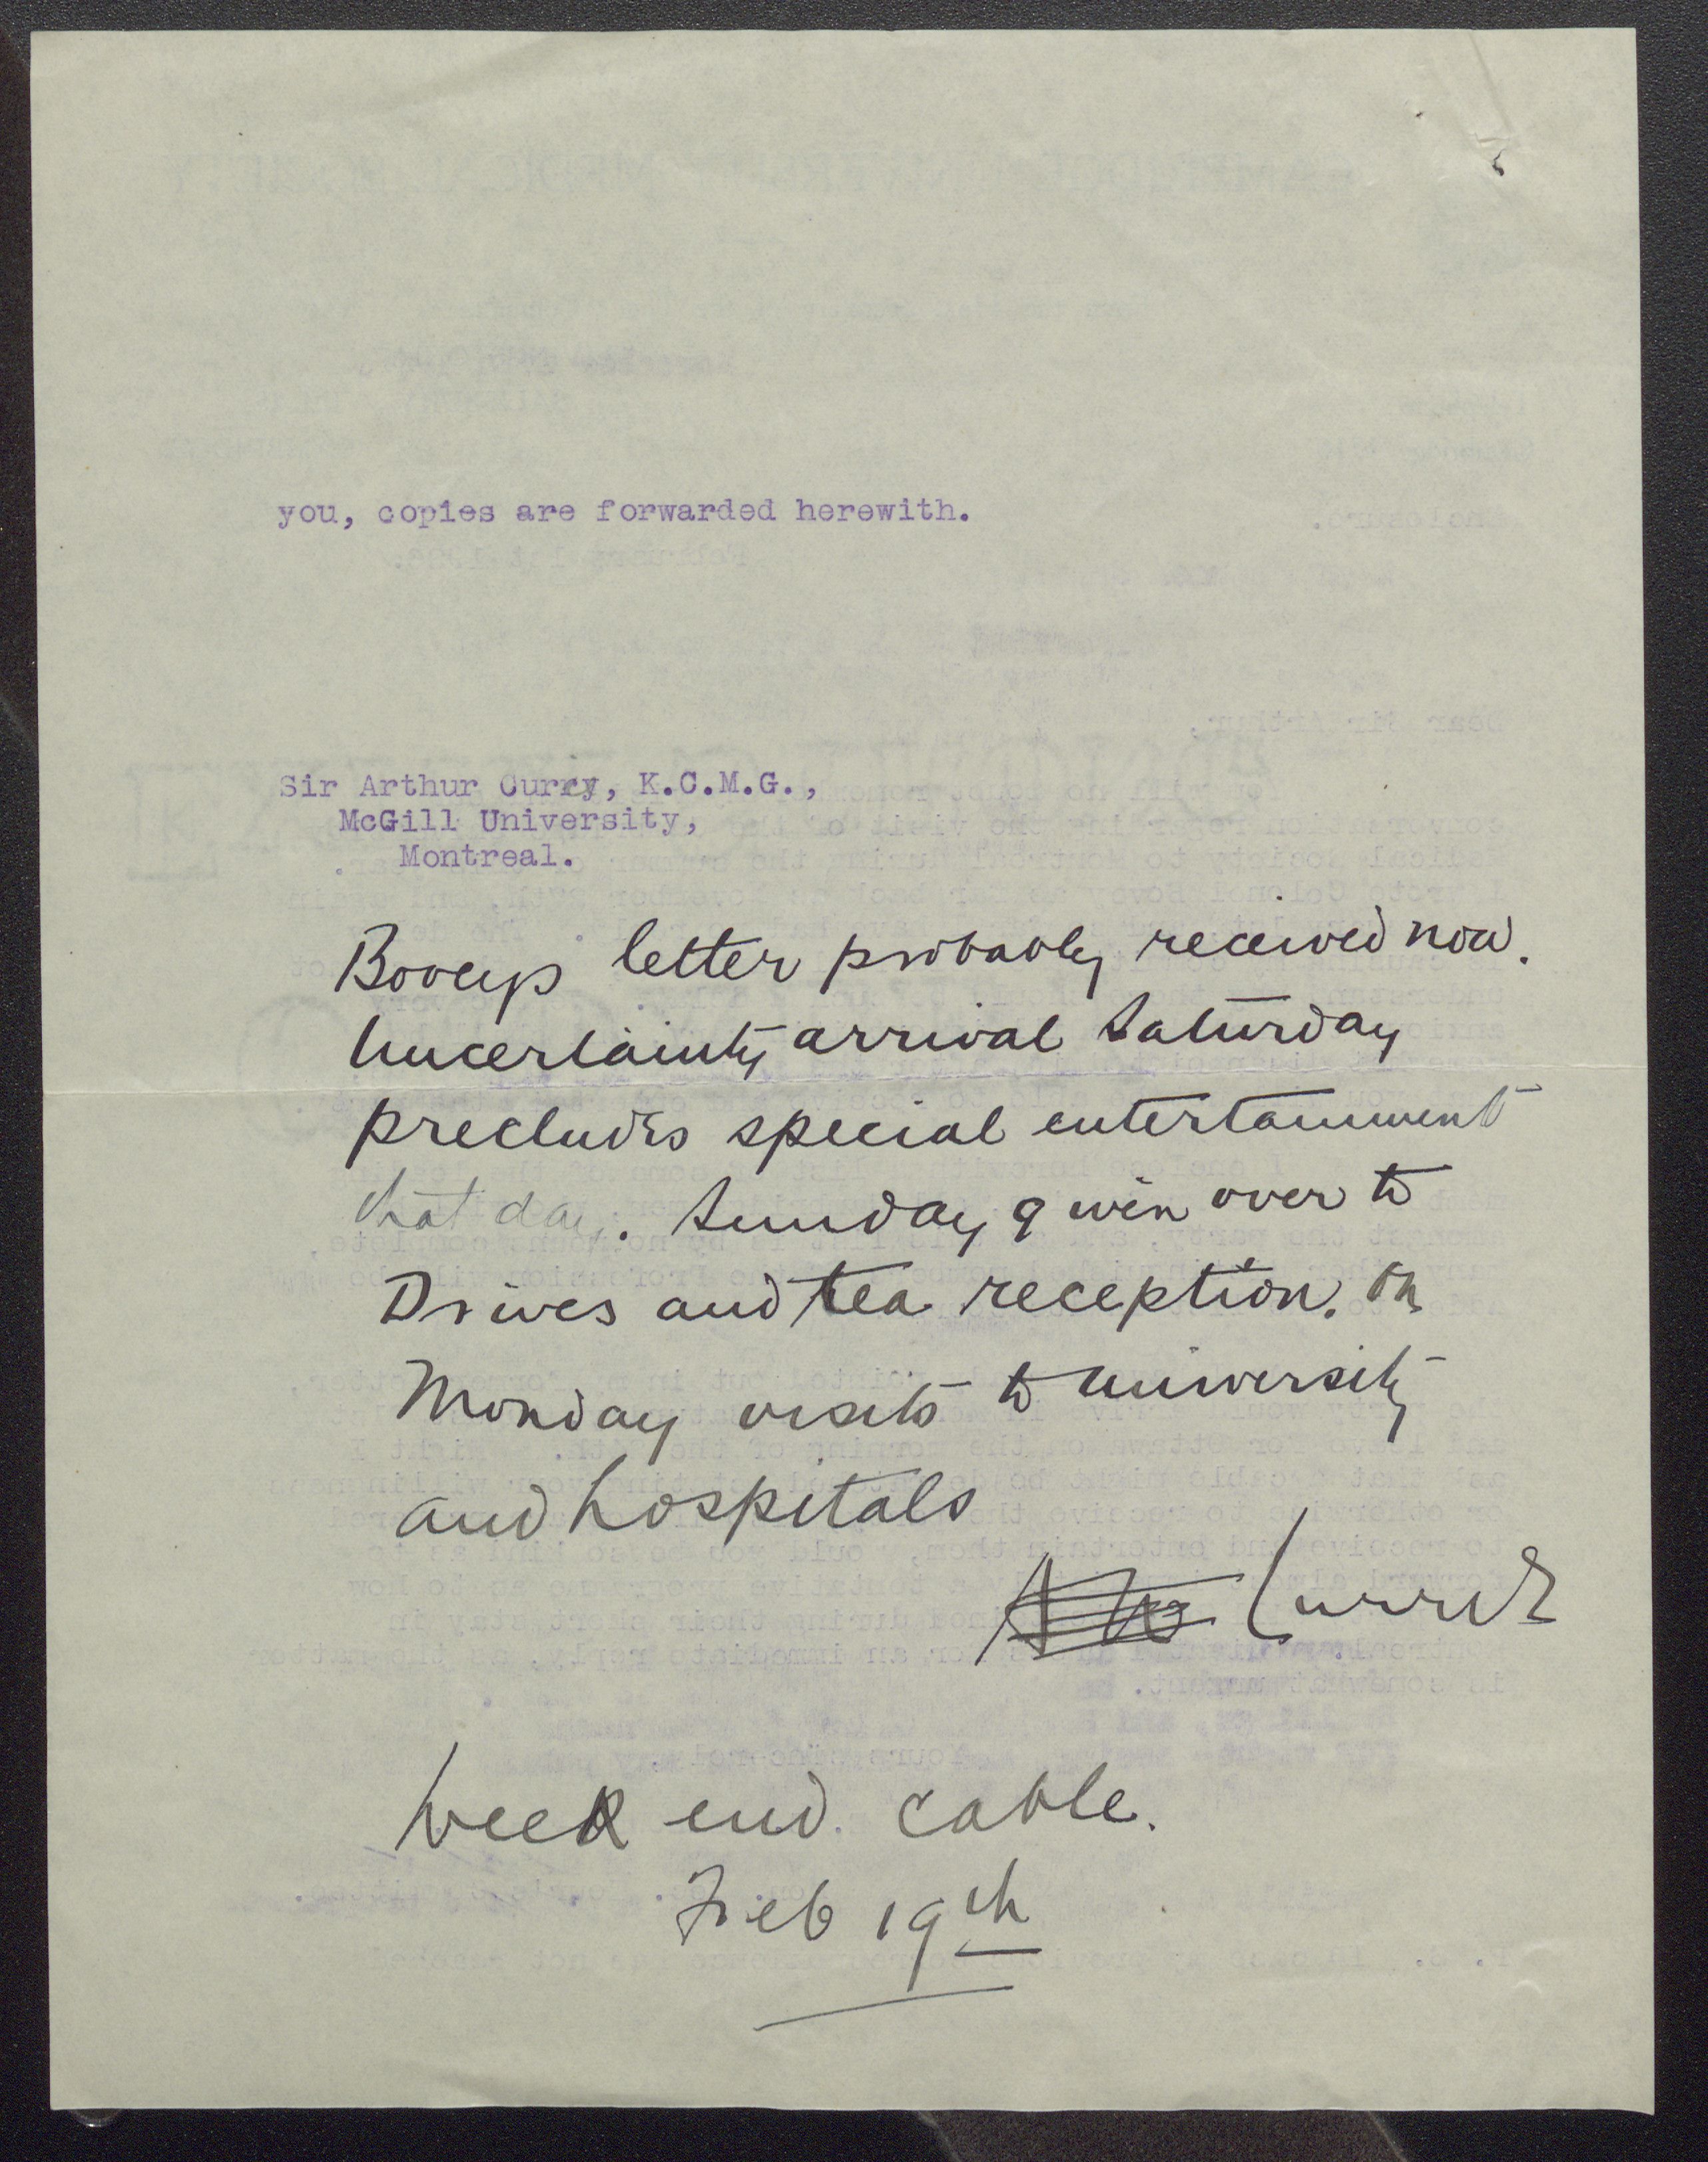 you, copies are forwarded herewith.
Sir Arthur Curry, K.C.M.G.,
McGill University,
Montreal.
Boveys letter probably received now.
Uncertainty arrival Saturday
precludes special entertainment
that day. Sunday given over to
Drives and tea reception. On
Monday visits to university
and hospitals
Currie
Week end cable.
Feb 19th